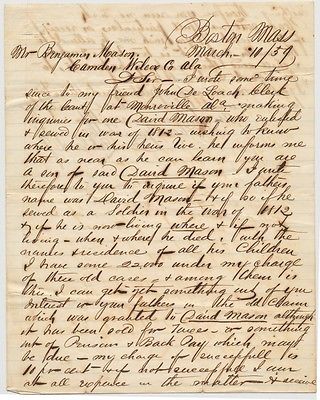 Boston Mass
March - 10/59
Mr Benjamin Mason
Camden Wilcox Co Ala
Sir - I wrote some time
since to my friend John De Loach, Clerk
of the Court at Monroeville Ala - making
inquiries for one David Mason - who enlisted
& served in war of 1812 - wishing to know
where he or his heirs live, he informs me
that as near as he can learn you are
a son of said David Mason - I write
therefore to you to inquire if your fathers
name was David Mason - & if so if he
served as a Soldier in the war of 1812
& if he is now living where & if not
living - when & where he died, with the
names & residence of all his Children
I have some 22,000 under my charge
of these old cases & among them is
this - I can get yet something out of your
interest or your fathers in the old Claim
which was granted to David Mason although
it has been sold for Taxes - or something
out of Pensions & Back Pay which may
be due - my charge if successfull is
10 pr cent - if not successfull I am
at all expence in the matter - & receive